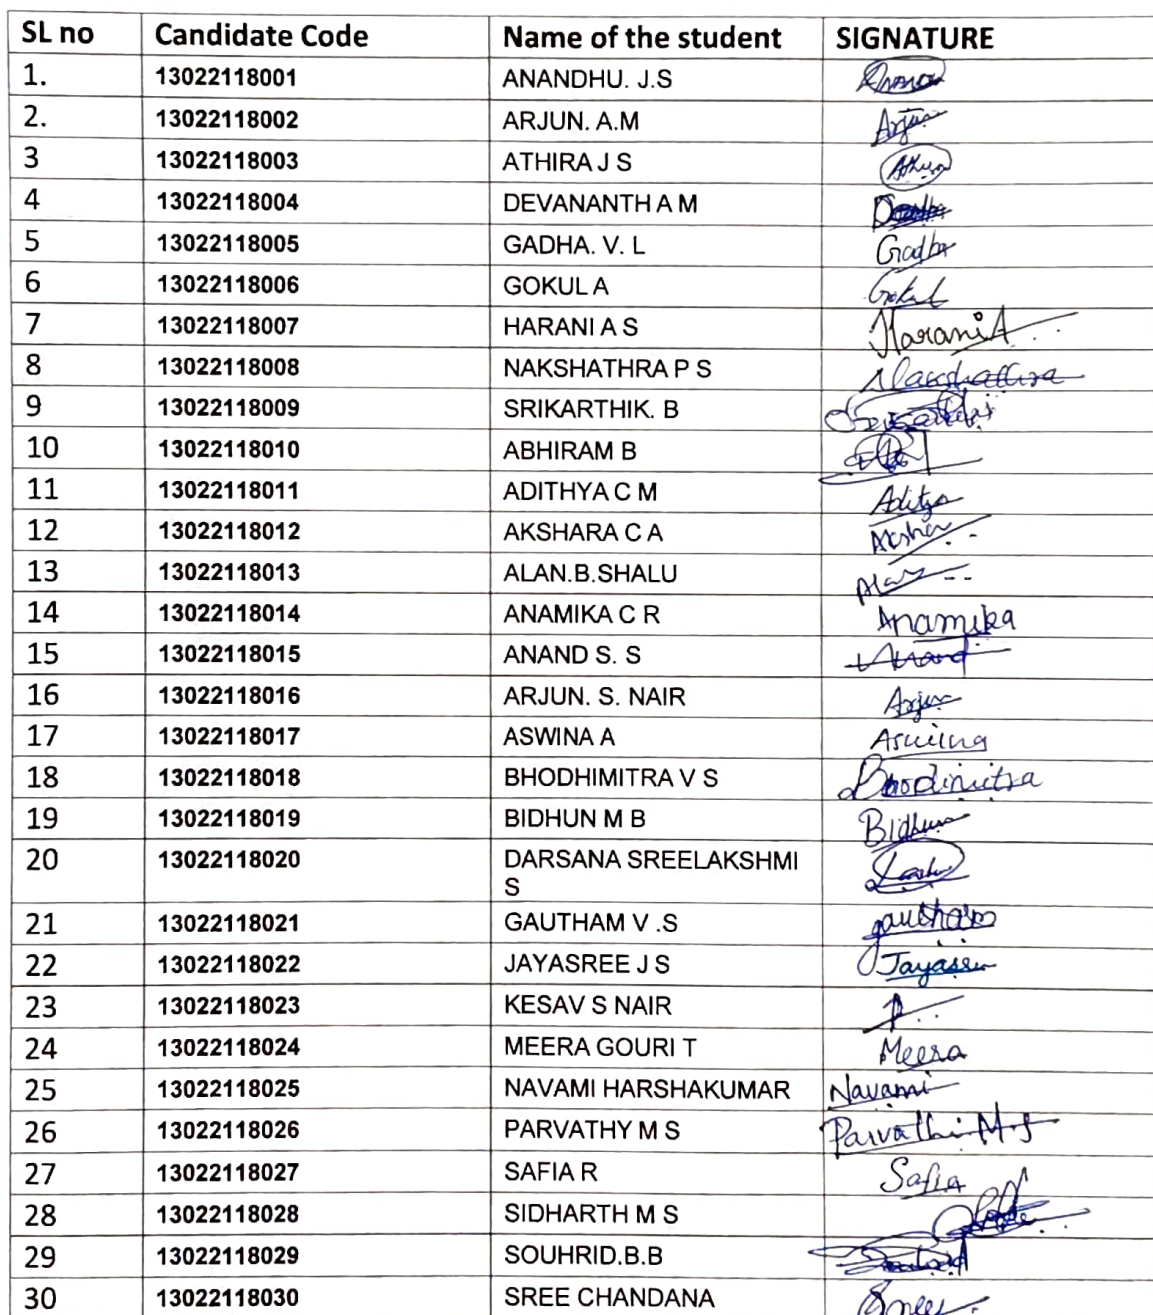 SL no Candidate Code Name of the student SIGNATURE
1. 13022118001 ANANDHU. J.S
2. 13022118002 ARJUN. A.M Arjun
3 13022118003 ATHIRA J S Athira
4 13022118004 DEVANANTH A M
5 13022118005 GADHA. V. L Gadha
6 13022118006 GOKUL A Gokul
7 13022118007 HARANI A S Harani A
8 13022118008 NAKSHATHRA P S Nakshathra
9 13022118009 SRIKARTHIK. B
10 13022118010 ABHIRAM B
11 13022118011 ADITHYA C M Aditya
12 13022118012 AKSHARA C A
13 13022118013 ALAN.B.SHALU Alan
14 13022118014 ANAMIKA C R Anamika
15 13022118015 ANAND S. S Anand
16 13022118016 ARJUN. S. NAIR Arjun
17 13022118017 ASWINA A Aswina
18 13022118018 BHODHIMITRA V S Bhodimitra
19 13022118019 BIDHUN M B Bidhun
20 13022118020 DARSANA SREELAKSHMI
S
21 13022118021 GAUTHAM V .S gautham
22 13022118022 JAYASREE J S Jayasree
23 13022118023 KESAV S NAIR
24 13022118024 MEERA GOURI T Meera
25 13022118025 NAVAMI HARSHAKUMAR Navami
26 13022118026 PARVATHY M S Parvathi M.S
27 13022118027 SAFIA R Safia
28 13022118028 SIDHARTH M S
29 13022118029 SOUHRID.B.B
30 13022118030 SREE CHANDANA Sree